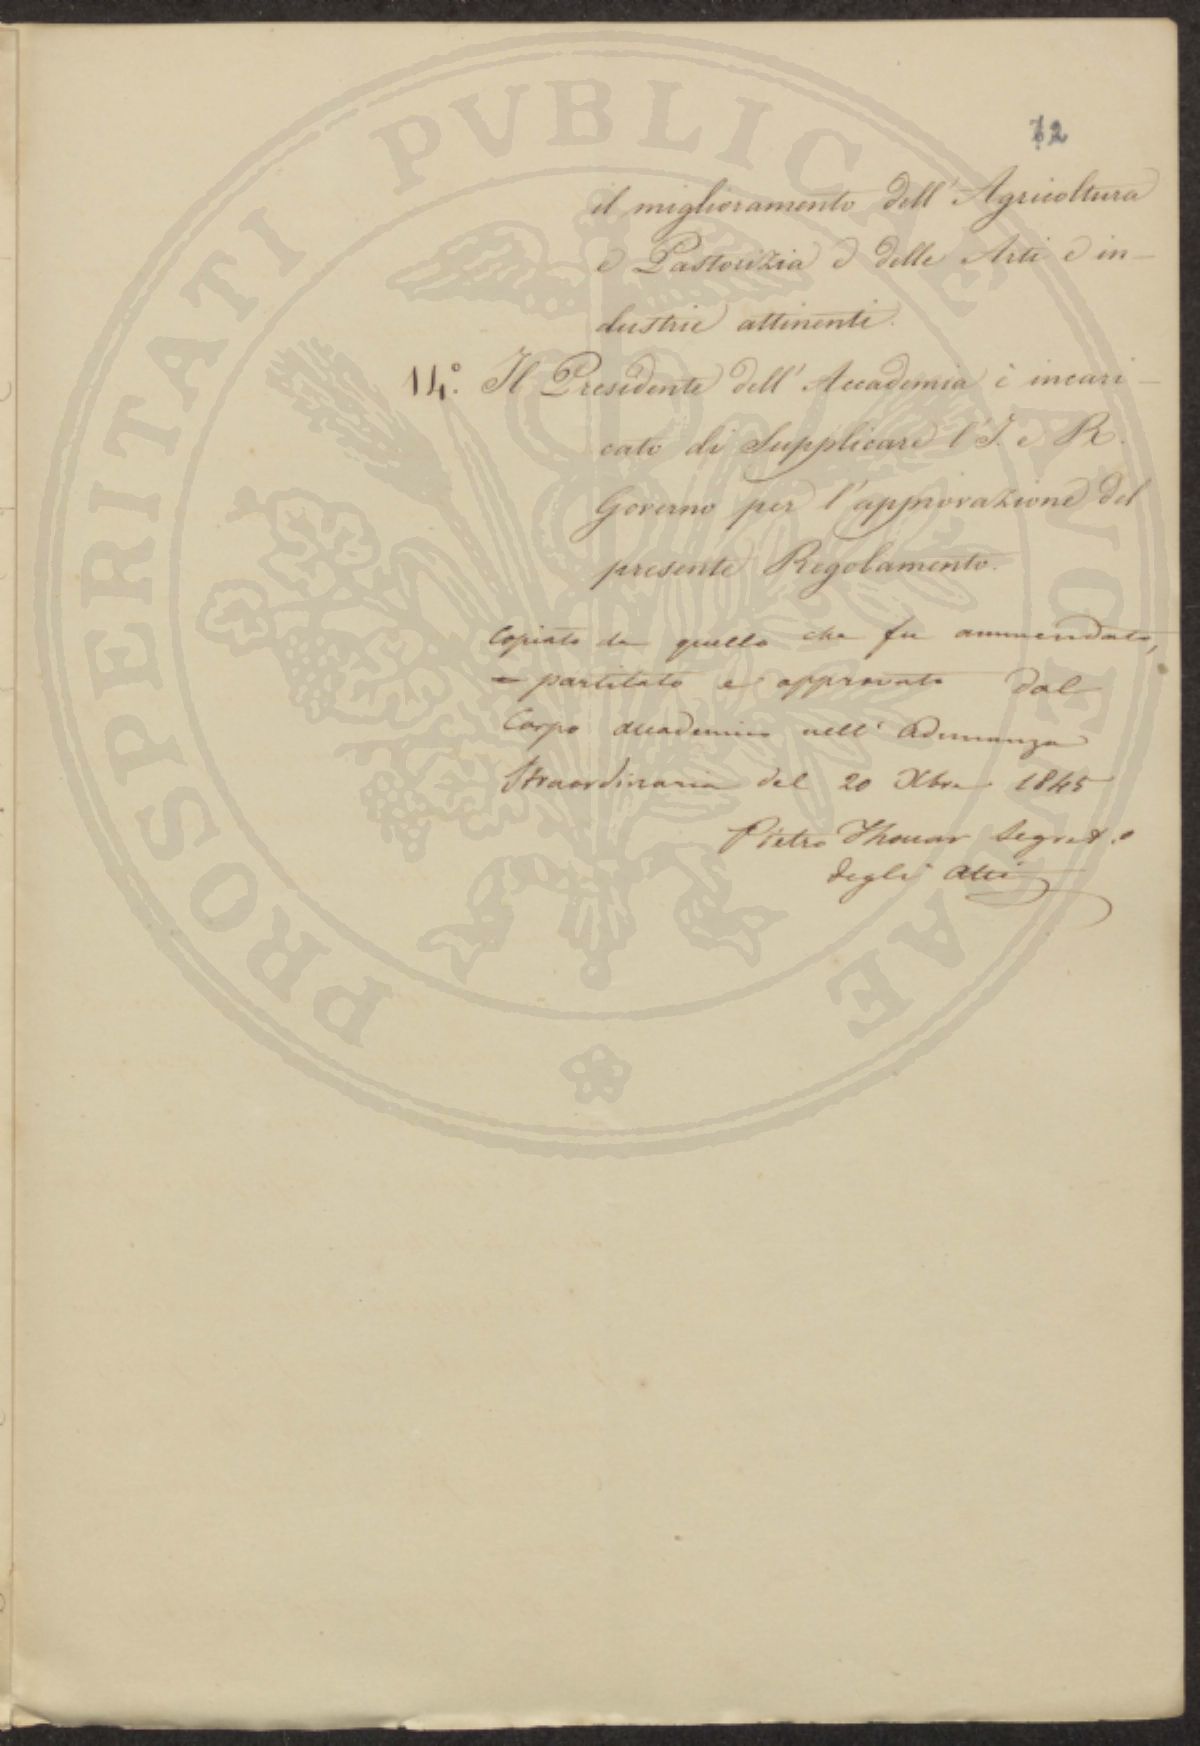 72
il miglioramento dell'Agricoltura
e Pastorizia e delle Arti e in-
dustrie attinenti.
14.° Il Presidente dell'Accademia è incari-
cato di Supplicare l'I. e R.
Governo per l'approvazione del
presente Regolamento.
Copiato da quello che fu ammendato,
partitato e approvato dal
Corpo accademico nell'Adunanza
Straordinaria del 20 Xbre 1845
Pietro Thouar Segret.°
degli Atti
PROSPERITATI PVBLICAE AVGENDAE